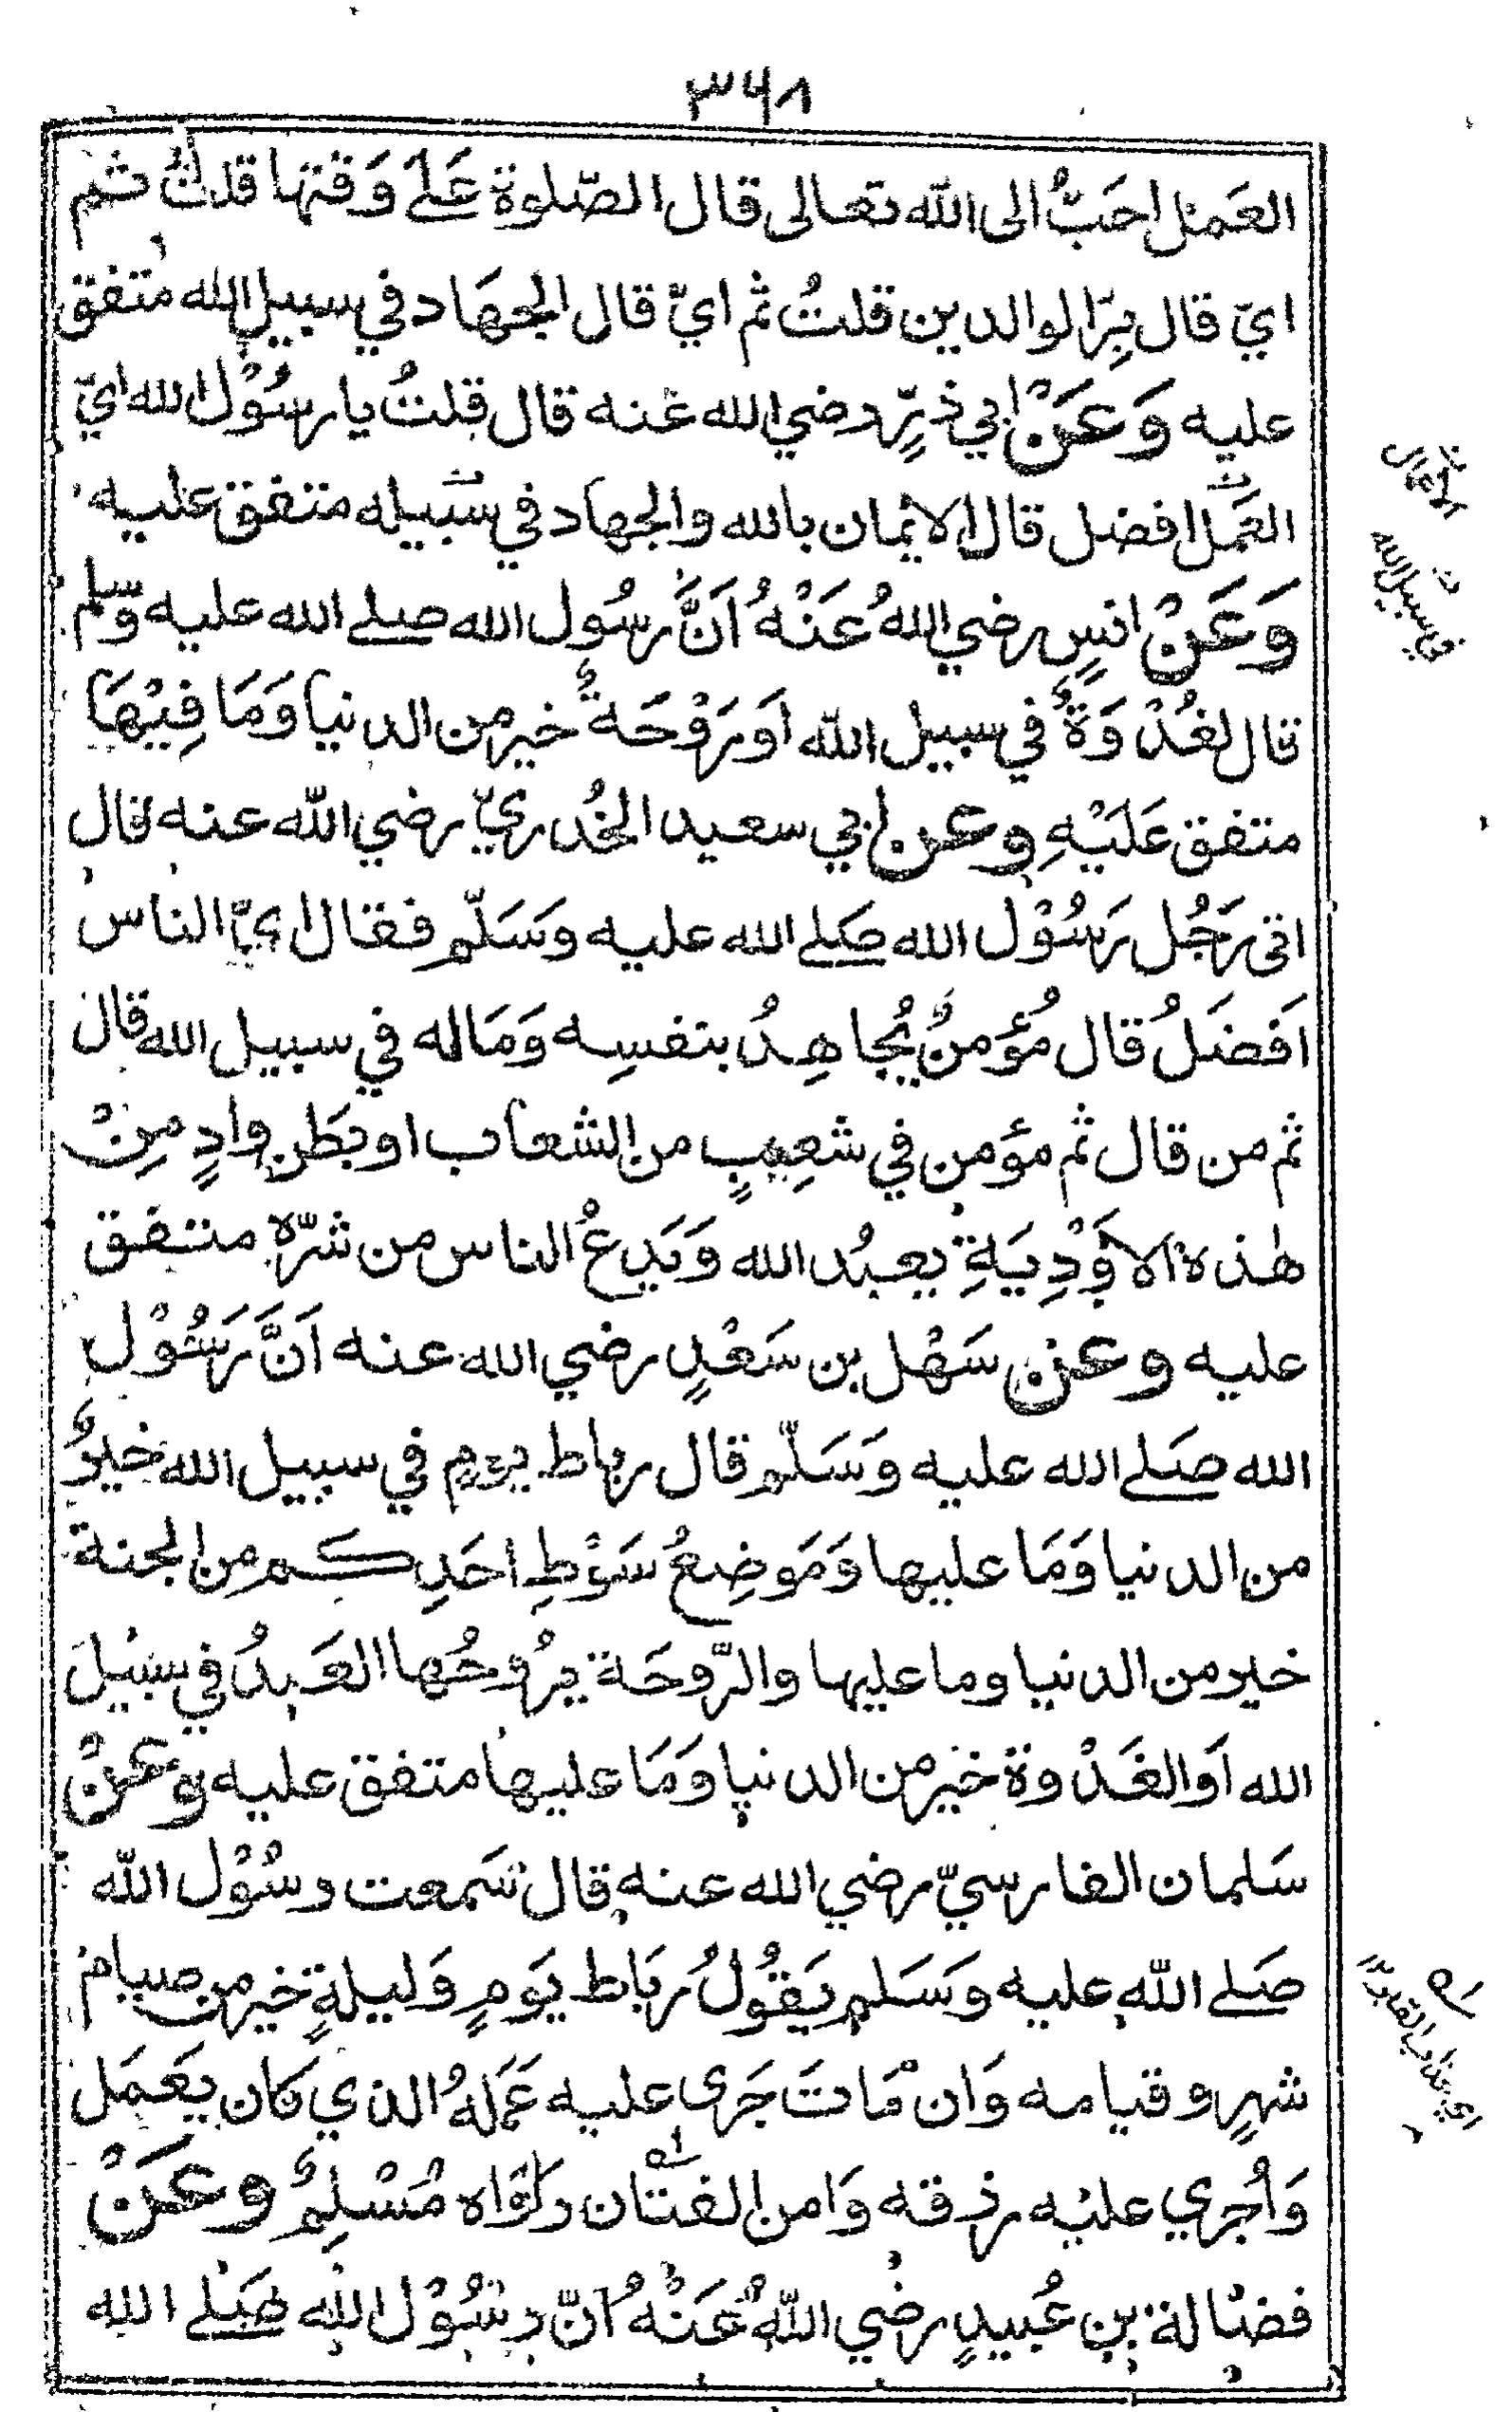 ٣٦٨
العَمَل احَبُّ الى الله تعالى قال الصّلوة عَلٰى وَقتها قلتُ ثم
ايّ قال بِرّ الوالدين قلتُ ثم ايّ قال الجهَاد في سبيل الله متفق
عليه وَعَنْ ابي ذرٍّ رضي الله عنه قال قلتُ يا رسُوْل الله ايّ
العَمَل افضل قال الايْمان بالله والجهاد في سَبيله متفق عليه
وَعَنْ انسٍ رضي اللهُ عَنْهُ اَنَّ رسُول الله صلے الله عليه وَسَلم
قال لغُدْوَةٌ في سبيل الله اَو رَوْحَةٌ خير من الدنيا وَمَا فِيْهَا
متفق عَلَيْهِ وعن ابي سعيد الخُدريّ رضي الله عنه قال
اتى رَجُل رَسُوْل الله صَلے الله عليه وَسَلّم فقال ايّ الناس
اَفضَلُ قال مُؤمنٌ يُجاهِدُ بنفسِه وَمَاله في سبيل الله قال
ثم من قال ثم مؤمن في شعِبٍ من الشعاب او بطن وادٍ مِنْ
هٰذه الاَوْدِيَةِ يعبُد الله وَيَدعُ الناس من شرّه متفق
عليه وعن سَهْل بن سَعْدٍ رضي الله عنه اَنَّ رَسُوْل
الله صَلے الله عليه وَسَلّم قال رباط يومٍ في سبيل الله خيرٌ
من الدنيا وَمَا عليها وَمَوضِعُ سَوْطِ احَدِكم من الجنة
خير من الدنيا وما عليها والرّوحَة يرُوحُها العَبدُ في سبيْل
الله اَو الغَدْوة خير من الدنيا وَمَا عليها متفق عليه وعَنْ
سَلمان الفارسيّ رضي الله عنه قال سَمعت رسُوْل الله
صَلے الله عليه وَسَلم يَقُولُ رِبَاط يَومٍ وَليلةٍ خير من صيام
شهرٍ وقيامه وَان مَاتَ جَرى عليه عَمَلهُ الذي كان يعَمَل
وَاُجري عليْه رزقه وَامن الفتان رَوَاه مُسْلِمٌ وعَنْ
فضالة بن عُبيدٍ رضي اللهُ عَنْهُ اَنّ رسُوْل الله صَلے الله
في سبيل الله
اي عذاب القبر